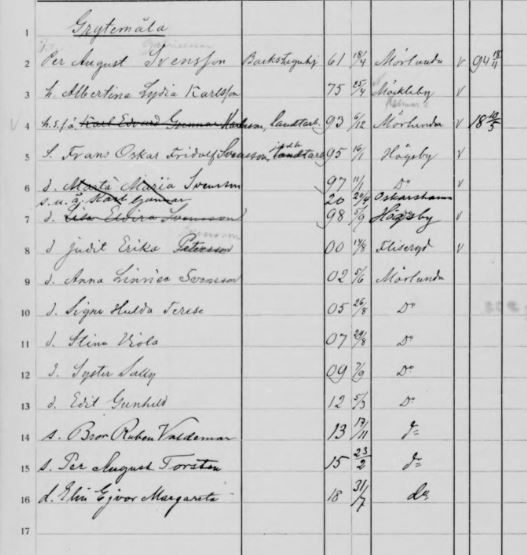 1 Grytemåla
2 Per August Svensson Backsteguhj 61 18/4 Mörlunda v 94 18/11
3 h. Albertina Lydia Karlsson 75 25/4 Möckleby v
4 v h.s.f.ä. Karl Edvard Gunnar Karlsson, landtarb. 93 6/12 Mörlunda v 18 10/5
5 s. Frans Oskar Fridolf Svensson, landtarb 95 16/1 Högsby v
6 d. Marta Maria Svensson 97 11/1 Do
s.u.ä. Karl Gunnar 20 24/4 Oskarshamn
7 d. Elvira Svensson 98 5/9 Högsby v
8 d. Judit Erika Petersson 00 17/8 Fliseryd v
9 d. Anna Linnéa Svensson 02 5/6 Mörlunda
10 d. Signe Hulda Terese 05 26/8 Do
11 d. Stina Viola 07 29/8 Do
12 d. Syster Sally 09 7/9 Do
13 d. Edit Gunhild 12 5/3 Do
14 s. Bror Ruben Valdemar 13 17/11 do
15 s. Per August Torsten 15 23/2 do
16 d. Elin Ejvor Margareta 18 31/7 do
17